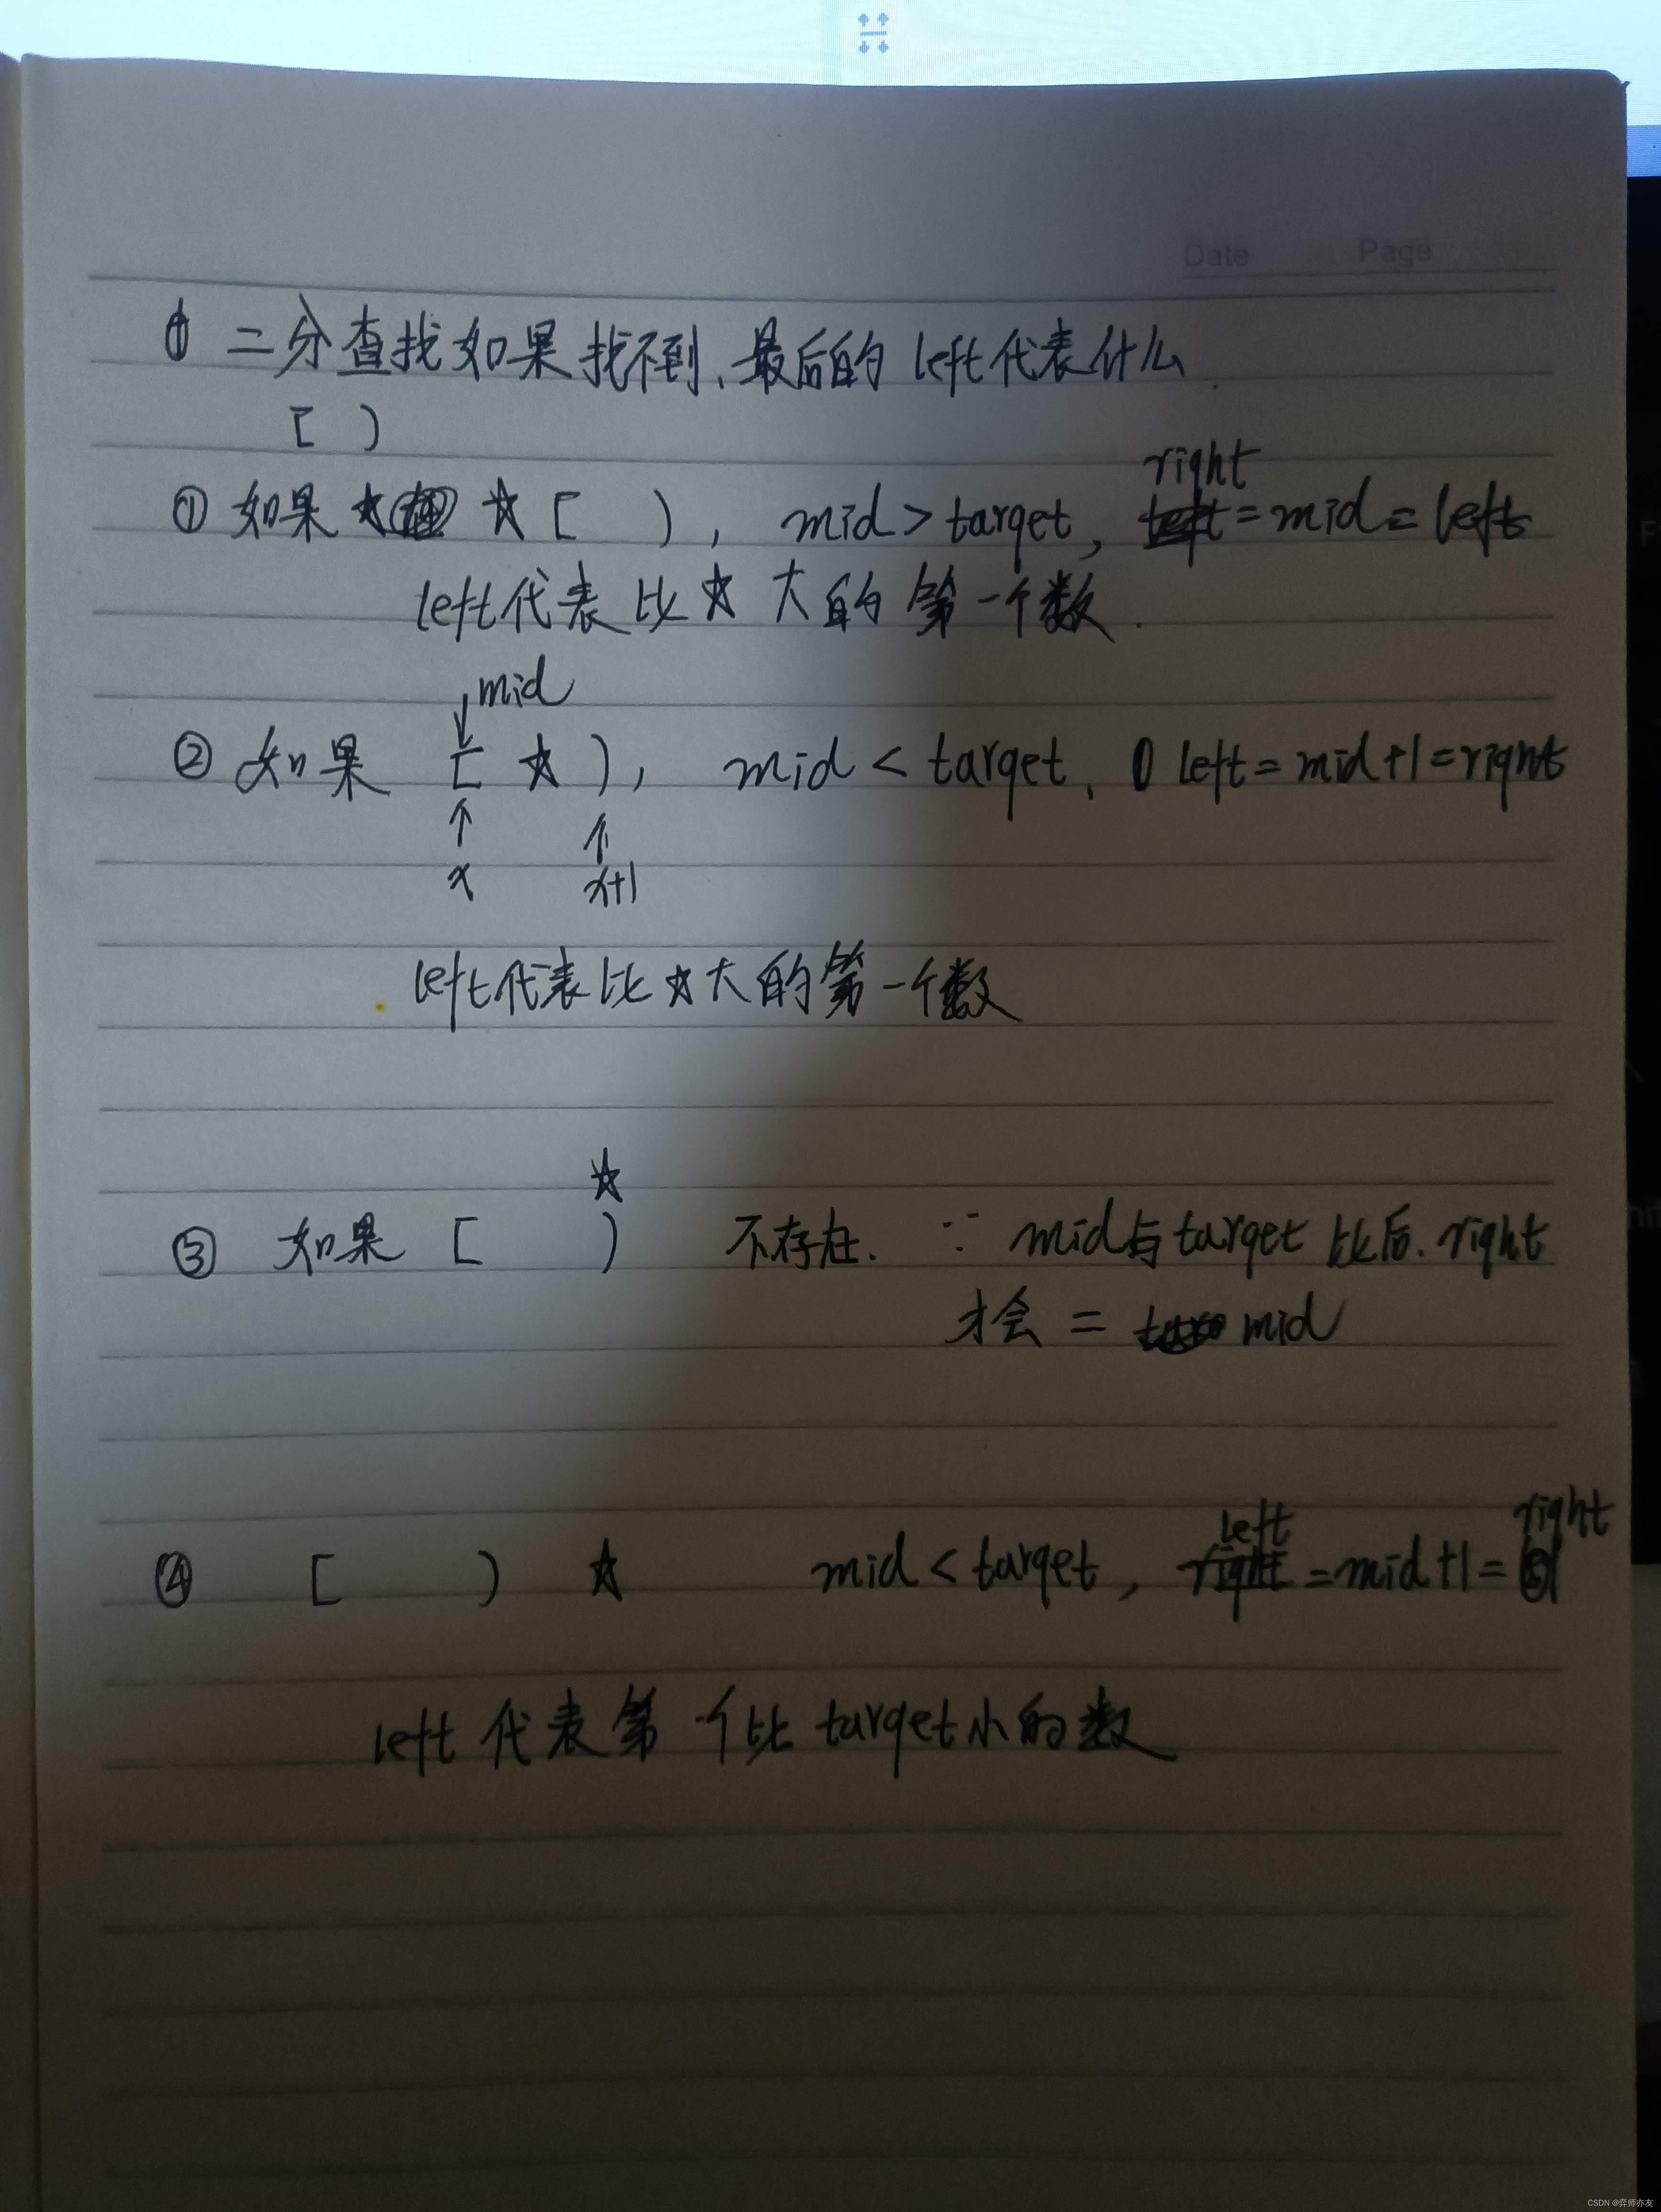 Date Page
二分查找如果找不到、最后的 left代表什么.
[ )
① 如果 ☆ [ ), mid > target, right = mid = left
left代表比☆大的第一个数.
↓mid
② 如果 [ ☆ ), mid < target, left = mid+1 = right
↑ ↑
x x+1
left代表比☆大的第一个数
☆
③ 如果 [ ) 不存在. ∵ mid与target比后. right
才会 = mid
④ [ ) ☆ mid < target, left = mid+1 = right
left 代表第一个比 target小的数
CSDN @弈师亦友